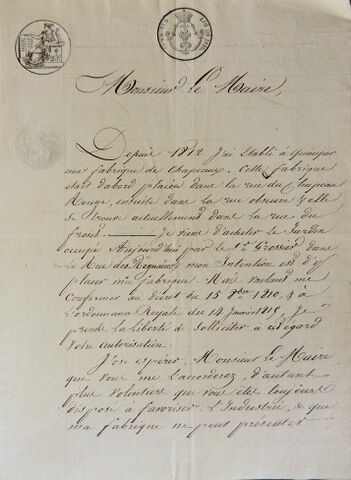 Monsieur Le Maire,
Depuis 1812 J'ai Etabli à Quimper
une fabrique de Chapeaux. Cette fabrique
etait d'abord placée dans la rue du Chapeau
Rouge, ensuite dans la rue obscure & elle
se trouve actuellement dans la rue du
frout ——— Je viens d'acheter le Jardin
occupé Aujourd'hui par le Sr. Grossier dans
la Rue des Réguaires, mon Intention est d'y
placer ma fabrique. Mais voulant me
Conformer au décret du 15 8bre 1810, & à
L'ordonnance Royale du 14 Janvier 1815, Je
prends la Liberté de Solliciter à cet égard
votre autorisation.
J'ose espérer, Monsieur Le Maire,
que vous me l'accorderez, d'autant
plus volontiers que vous êtes toujours
disposé à favoriser L'Industrie, & que
ma fabrique ne peut présenter